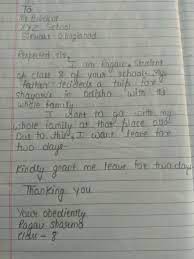 To
XYZ School
Respected sir,
I am Pagav, student
of class 8 of your school. My
father decided a trip for
in Odisha with
whole family
I want to go with my
whole family at that place and
Due to this, I want leave for
two days
Kindly grant me leave for two day
Thanking you
Your obediently
Pagav sharma
Class - 8